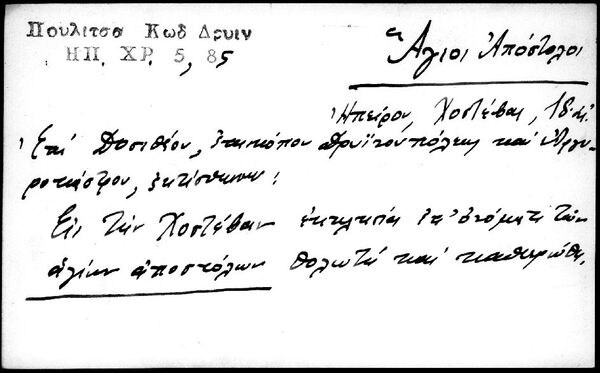 Πουλιτσα Κωδ Δρυιν
ΗΠ. ΧΡ. 5, 85
Ἅγιοι Ἀπόστολοι
Ἠπείρου, Χοστέβα, 18 αἰ.
Ἐπί Δοσιθέου, ἐπισκόπου Δρυϊνουπόλεως καί Ἀργυ-
ροκάστρου, ἐκτίσθησαν:
Εἰς τήν Χοστέβαν ἐκκλησία ἐπ' ὀνόματι τῶν
ἁγίων ἀποστόλων θολωτή καί καθιερώθη.